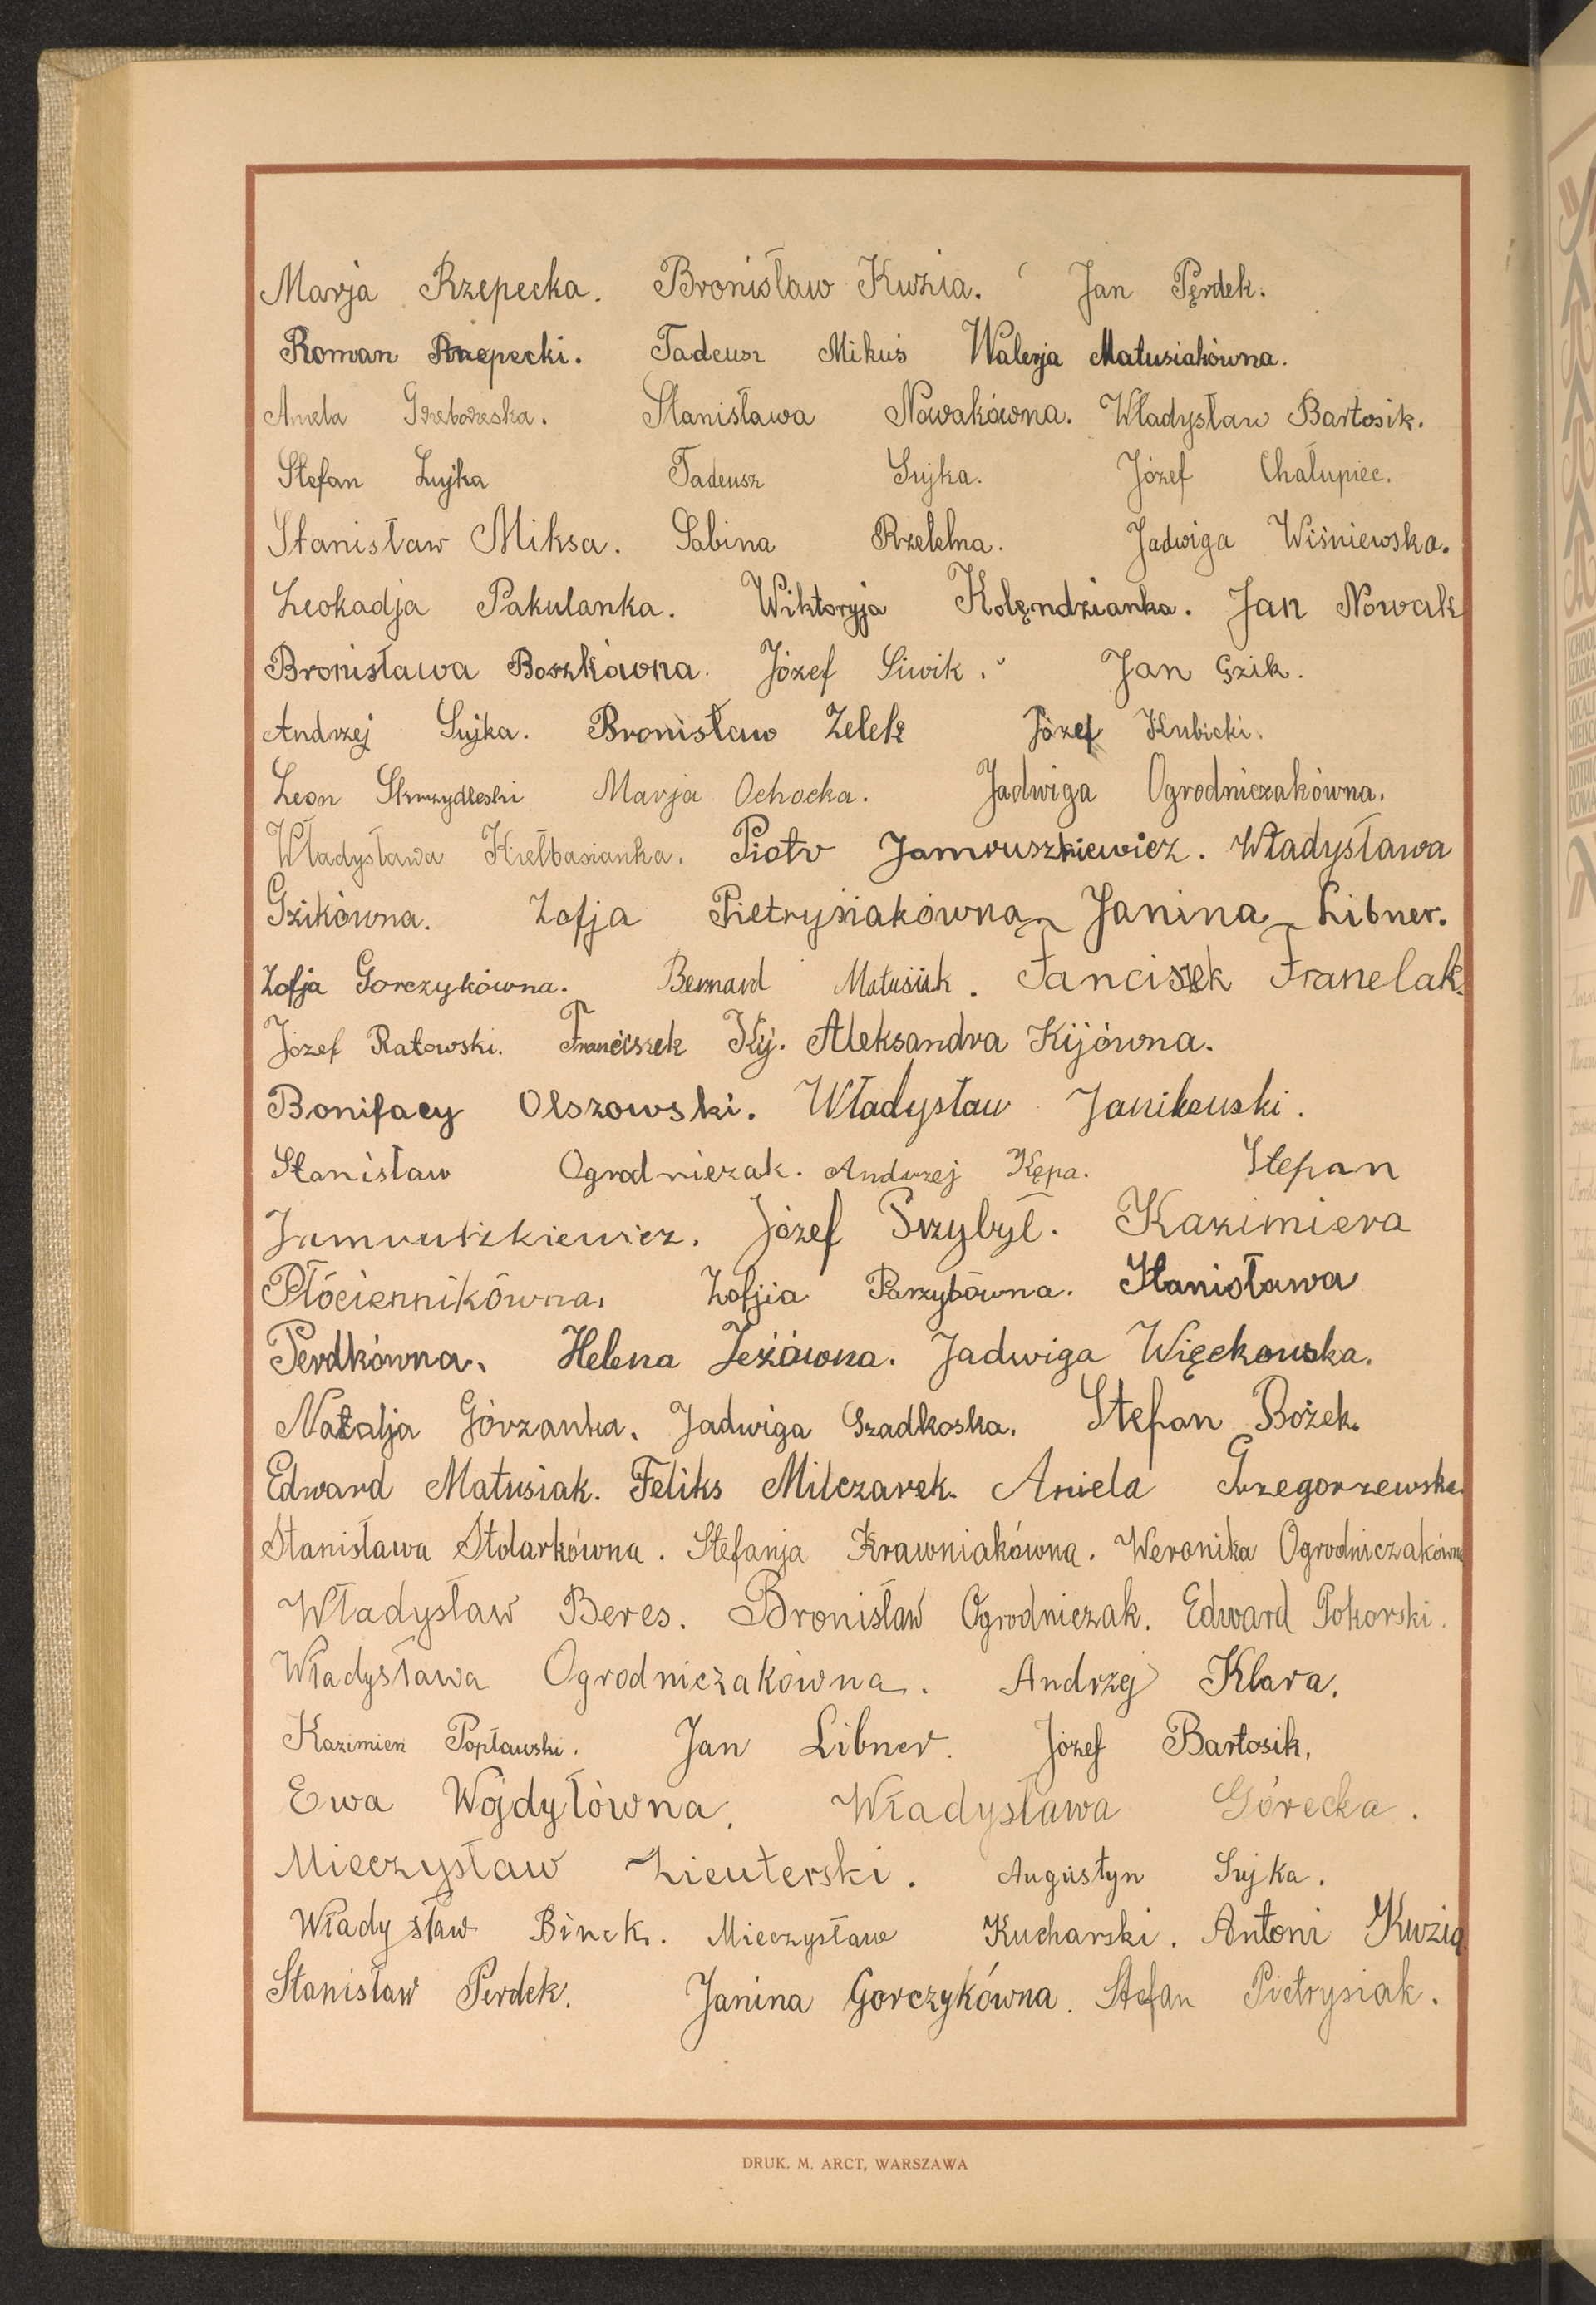 Marja Rzepecka. Bronisław Kuzia. Jan Pęrdek.
Roman Rzepecki. Tadeusz Mikuś Walerja Matusiakówna.
Aniela Grzeborzeska. Stanisława Nowakówna. Władysław Bartosik.
Stefan Sujka Tadeusz Sujka. Józef Chałupiec.
Stanisław Miksa. Sabina Rzetelna. Jadwiga Wiśniewska.
Leokadja Pakulanka. Wiktoryja Kolęndzianka. Jan Nowak
Bronisława Boszkówna. Józef Siwik. Jan Gzik.
Andrzej Sujka. Bronisław Zelek Józef Kubicki.
Leon Skrzydleski Marja Ochocka. Jadwiga Ogrodniczakówna.
Władysława Kiełbasianka. Piotr Jamruszkiewicz. Władysława
Gzikówna. Zofja Pietrysiakówna Janina Libner.
Zofja Gorczykówna. Bernard Matusiak. Fanciszek Franelak.
Józef Ratowski. Franciszek Kij. Aleksandra Kijówna.
Bonifacy Olszowski. Władysław Janikowski.
Stanisław Ogrodniczak. Andrzej Kępa. Stepan
Jamruszkiewicz. Józef Przybył. Kazimiera
Płóciennikówna. Zofjia Parzybówna. Stanisława
Perdkówna. Helena Jeżówna. Jadwiga Więckowska.
Natalja Górzanka. Jadwiga Szadkoska. Stefan Bożek.
Edward Matusiak. Feliks Milczarek. Aniela Grzegorzewska.
Stanisława Stolarkówna. Stefanja Krawniakówna. Weronika Ogrodniczakówna
Władysław Beres. Bronisław Ogrodniczak. Edward Pokorski.
Władysława Ogrodniczakówna. Andrzej Klara.
Kazimierz Popławski. Jan Libner. Józef Bartosik.
Ewa Wójdyłówna. Władysława Górecka.
Mieczysław Lieuterski. Augustyn Sujka.
Władysław Binek. Mieczysław Kucharski. Antoni Kuzia.
Stanisław Perdek. Janina Gorczykówna. Stefan Pietrysiak.
DRUK. M. ARCT, WARSZAWA